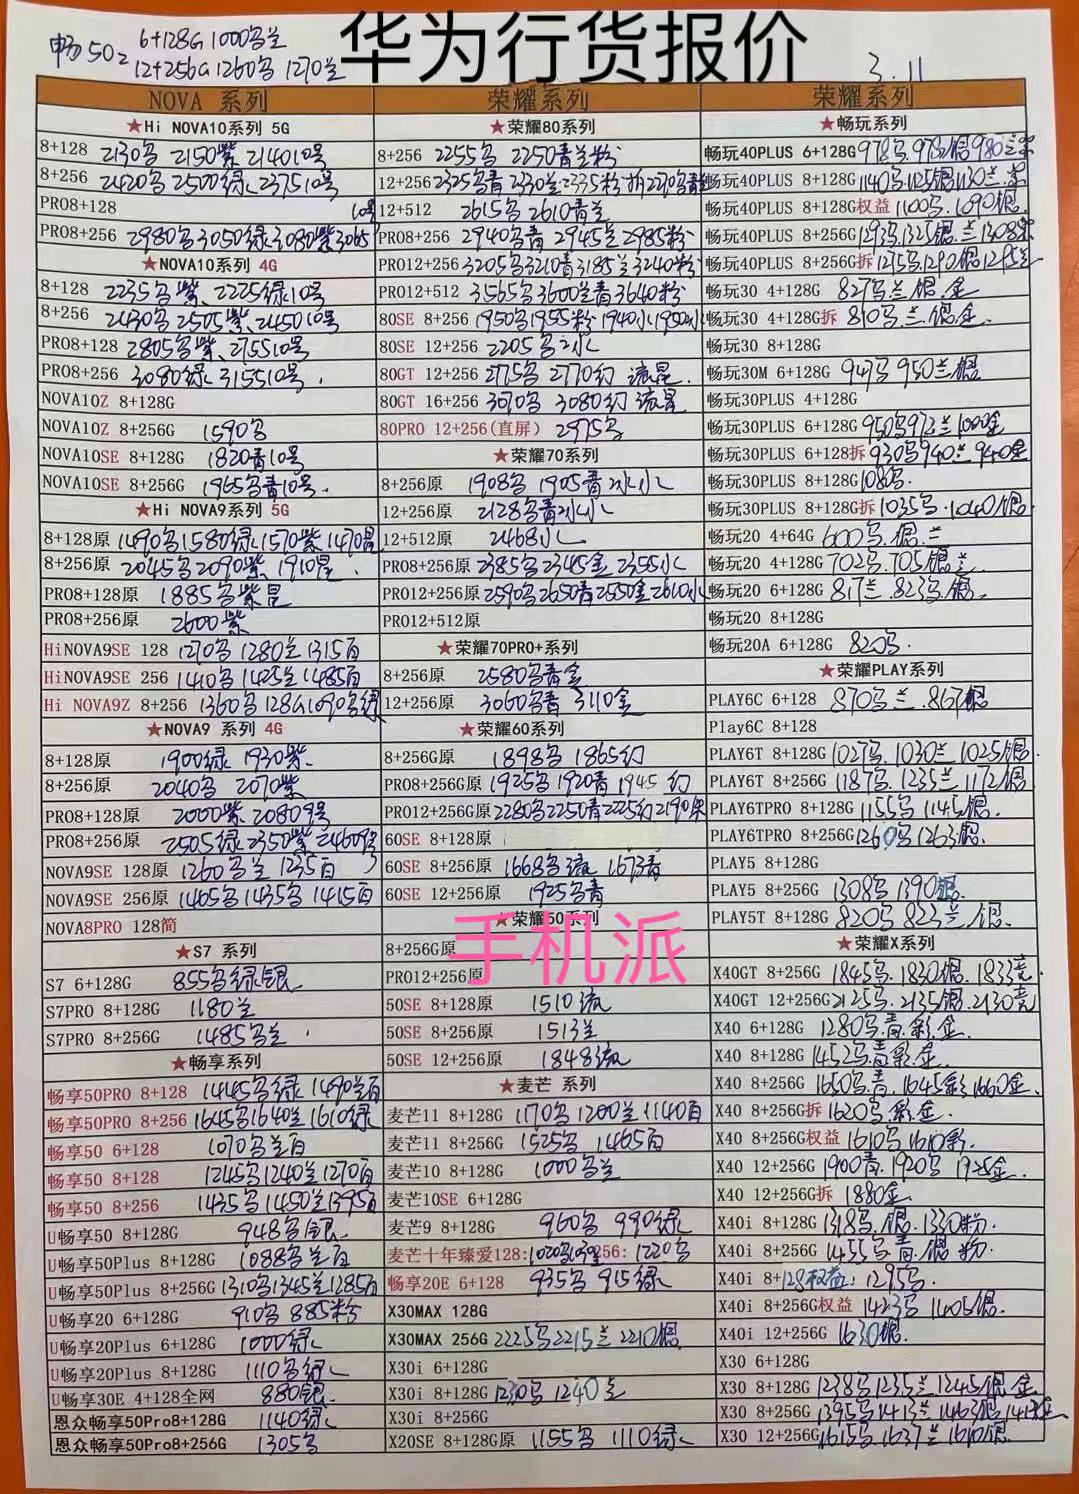 华为行货报价
畅50z 6+128G 1000乌兰
12+256G 1260乌 1270兰
3.11
NOVA 系列
★Hi NOVA10系列 5G
8+128 2130乌 2150紫 214010号
8+256 2420乌 2500绿 237510号
PRO8+128
PRO8+256 2980乌 3050绿 3080紫 3065 10号
★NOVA10系列 4G
8+128 2235乌紫、2225绿10号
8+256 2430乌 2505紫、245010号
PRO8+128 2805乌紫、275510号
PRO8+256 3080绿 315510号
NOVA10Z 8+128G
NOVA10Z 8+256G 1590乌
NOVA10SE 8+128G 1820青10号
NOVA10SE 8+256G 1965乌青10号
★Hi NOVA9系列 5G
8+128原 1490乌 1580绿 1570紫 1470昆
8+256原 2045乌 2090紫、1910昆
PRO8+128原 1885乌紫昆
PRO8+256原 2600紫
HiNOVA9SE 128 1270乌 1280兰 1315百
HiNOVA9SE 256 1410乌 1425兰 1485百
Hi NOVA9Z 8+256 1360乌 128G1090乌绿
★NOVA9 系列 4G
8+128原 1900绿 1930紫
8+256原 2040乌 2070紫
PRO8+128原 2000紫 20809号
PRO8+256原 2505绿 2350紫 24609号
NOVA9SE 128原 1260乌兰 1235百
NOVA9SE 256原 1405乌 1435乌 1415百
NOVA8PRO 128简
★S7 系列
S7 6+128G 855乌绿银
S7PRO 8+128G 1180兰
S7PRO 8+256G 1485乌兰
★畅享系列
畅享50PRO 8+128 1445乌绿 1490兰百
畅享50PRO 8+256 1645乌 1640兰 1610绿
畅享50 6+128 1070乌兰百
畅享50 8+128 1245乌 1240兰 1270百
畅享50 8+256 1435乌 1450兰 1395百
U畅享50 8+128G 948乌银
U畅享50Plus 8+128G 1088乌兰百
U畅享50Plus 8+256G 1310乌 1345兰 1285百
U畅享20 6+128G 910乌 885粉
U畅享20Plus 6+128G 1000绿
U畅享20Plus 8+128G 1110乌绿
U畅享30E 4+128全网 880银
恩众畅享50Pro8+128G 1140绿
恩众畅享50Pro8+256G 1305乌
荣耀系列
★荣耀80系列
8+256 2255乌 2250青兰粉
12+256 2325乌青 2330兰 2335粉 拆2270乌青兰
12+512 2615乌 2610青兰
PRO8+256 2940乌青 2945兰 2985粉
PRO12+256 3205乌 3210青 3185兰 3240粉
PRO12+512 3565乌 3600兰青 3640粉
80SE 8+256 1950乌 1955粉 1940冰 1950冰
80SE 12+256 2205乌冰
80GT 12+256 2775乌 2770幻 流星
80GT 16+256 3070乌 3080幻 流星
80PRO 12+256(直屏) 2975乌
★荣耀70系列
8+256原 1908乌 1905青冰水
12+256原 2128乌青冰水
12+512原 2468水
PRO8+256原 2385乌 2345金 2355水
PRO12+256原 2590乌 2650青 2550金 2610水
PRO12+512原
★荣耀70PRO+系列
8+256原 2580乌青金
12+256原 3060乌青 3110金
★荣耀60系列
8+256G原 1898乌 1865幻
PRO8+256G原 1925乌 1920青 1945 幻
PRO12+256G原 2280乌 2250青 2225幻 2190朱
60SE 8+128原
60SE 8+256原 1668乌流 1673青
60SE 12+256原 1925乌青
★荣耀50系列
手机派
8+256G原
PRO12+256原
50SE 8+128原 1510流
50SE 8+256原 1513兰
50SE 12+256原 1848流
★麦芒 系列
麦芒11 8+128G 1170乌 1200兰 1140百
麦芒11 8+256G 1525乌 1465百
麦芒10 8+128G 1000乌兰
麦芒10SE 6+128G
麦芒9 8+128G 960乌 990绿
麦芒十年臻爱128: 1020乌 256: 1220乌
畅享20E 6+128 935乌 915绿
X30MAX 128G
X30MAX 256G 2225乌 2215兰 2210银
X30i 6+128G
X30i 8+128G 1230乌 1240
X30i 8+256G
X20SE 8+128G原 1155乌 1110绿
荣耀系列
★畅玩系列
畅玩40PLUS 6+128G 978乌. 978银 980兰朱
畅玩40PLUS 8+128G 1140乌 1125银 1130兰.朱
畅玩40PLUS 8+128G权益 1100乌. 1090银.
畅玩40PLUS 8+256G 1293乌 1325银.兰 1308朱
畅玩40PLUS 8+256G拆 1275乌 1290银 1295兰
畅玩30 4+128G 827乌兰.银.金
畅玩30 4+128G拆 810乌.兰.银金.
畅玩30 8+128G
畅玩30M 6+128G 947乌 950兰银
畅玩30PLUS 4+128G
畅玩30PLUS 6+128G 950乌 972兰 1000金
畅玩30PLUS 6+128拆 930乌 940兰 940金
畅玩30PLUS 8+128G 108乌.
畅玩30PLUS 8+128G拆 1035乌. 1040银.
畅玩20 4+64G 600乌.银.兰
畅玩20 4+128G 702乌. 705银兰.
畅玩20 6+128G 817兰.823乌.银.
畅玩20 8+128G
畅玩20A 6+128G 820乌.
★荣耀PLAY系列
PLAY6C 6+128 870乌兰.867银
Play6C 8+128
PLAY6T 8+128G 1027乌. 1030兰 1025银.
PLAY6T 8+256G 1187乌. 1235兰 1172银
PLAY6TPRO 8+128G 1155乌 1145银.
PLAY6TPRO 8+256G 1260乌 1263银.
PLAY5 8+128G
PLAY5 8+256G 1308乌 1390银.
PLAY5T 8+128G 820乌 823兰.银.
★荣耀X系列
X40GT 8+256G 1845乌. 1830银. 1833竞
X40GT 12+256G 2125乌. 2135银. 2130竞
X40 6+128G 1280乌.青.彩.金.
X40 8+128G 1452乌青.彩.金.
X40 8+256G 1650乌.青. 1645彩 1660金.
X40 8+256G拆 1620乌.彩.金.
X40 8+256G权益 1610乌. 1610彩.
X40 12+256G 1900青. 1920乌 1925金.
X40 12+256G拆 1880金.
X40i 8+128G 1318乌.银. 1330粉.
X40i 8+256G 1455乌.青.银.粉.
X40i 8+128权益: 1295乌.
X40i 8+256G权益 1423乌 1405银.
X40i 12+256G 1630银.
X30 6+128G
X30 8+128G 1238乌 1235兰 1245银.金.
X30 8+256G 1395乌 1413兰 1463银 金.
X30 12+256G 1615乌.1637兰 1610银.